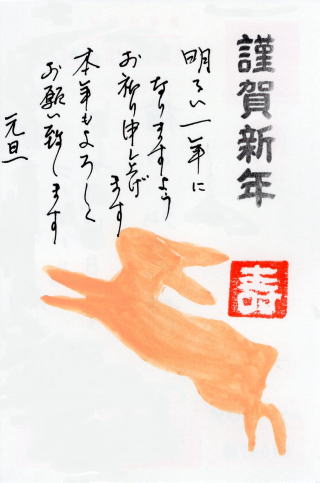 謹賀新年
寿
明るい一年に
なりますよう
お祈り申し上げ
ます
本年もよろしく
お願い致します
元旦